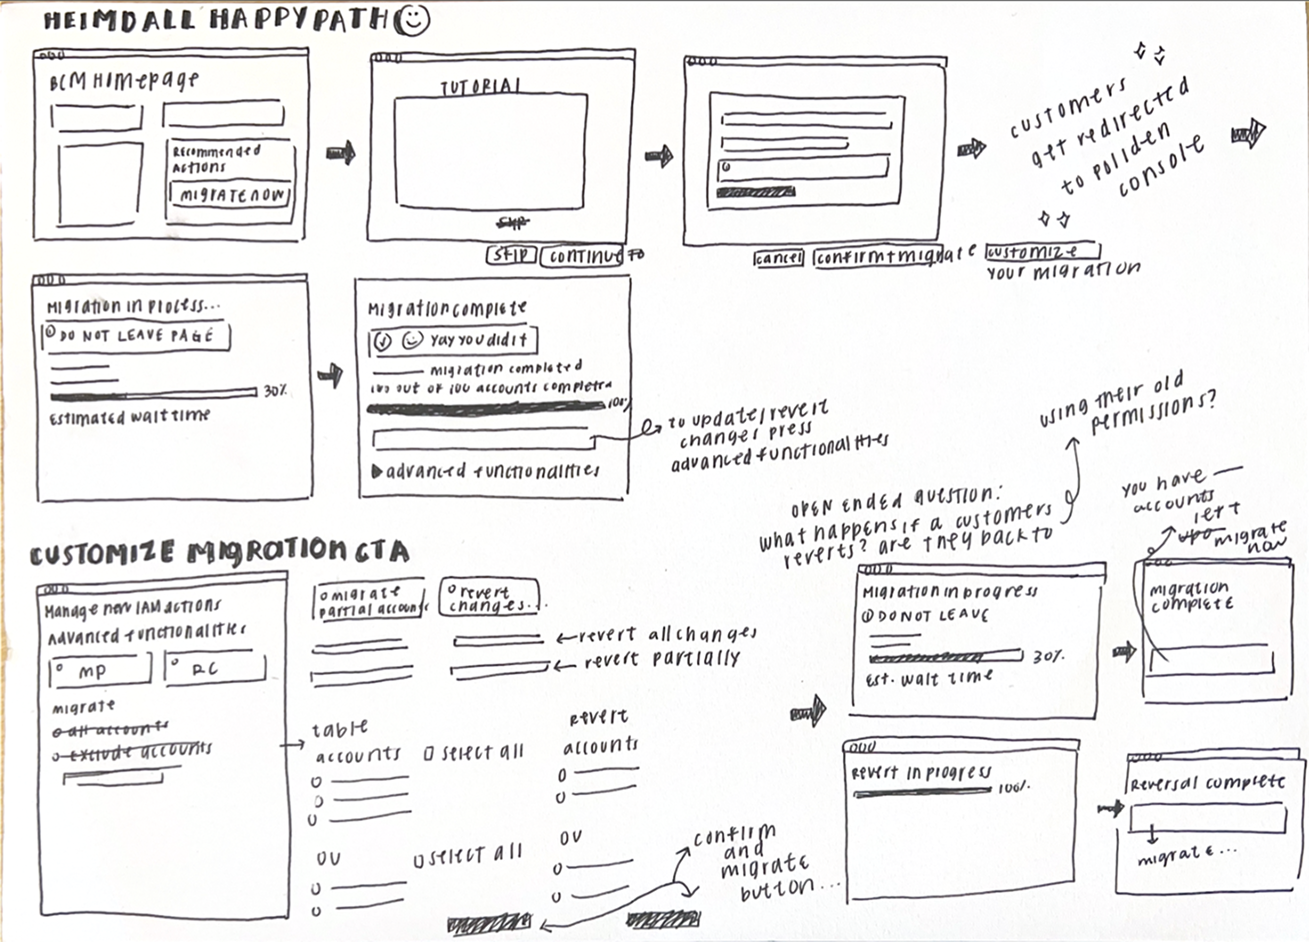 HEIMDALL HAPPY PATH
BCM Homepage
RECOMMENDED
ACTIONS
MIGRATE NOW
TUTORIAL
SKIP
SKIP
CONTINUE TO
cancel
confirm+migrate
customize
your migration
customers
get redirected
to poliden
console
Migration in process...
DO NOT LEAVE PAGE
30%
Estimated wait time
Migration complete
yay you did it
migration completed
100 out of 100 accounts completed
100%
advanced functionalities
to update/revert
changes press
advanced functionalities
OPEN ENDED QUESTION:
what happens if a customers
reverts? are they back to
using their old
permissions?
CUSTOMIZE MIGRATION CTA
Manage new IAM actions
Advanced functionalities
MP
RC
migrate
all accounts
exclude accounts
migrate
partial accounts
revert
changes...
revert all changes
revert partially
table
accounts
select all
OU
select all
revert
accounts
OU
confirm
and
migrate
button...
Migration in progress
DO NOT LEAVE
30%
Est. wait time
you have —
accounts
left
migrate
now
migration
complete
Revert in progress
100%
Reversal complete
migrate...